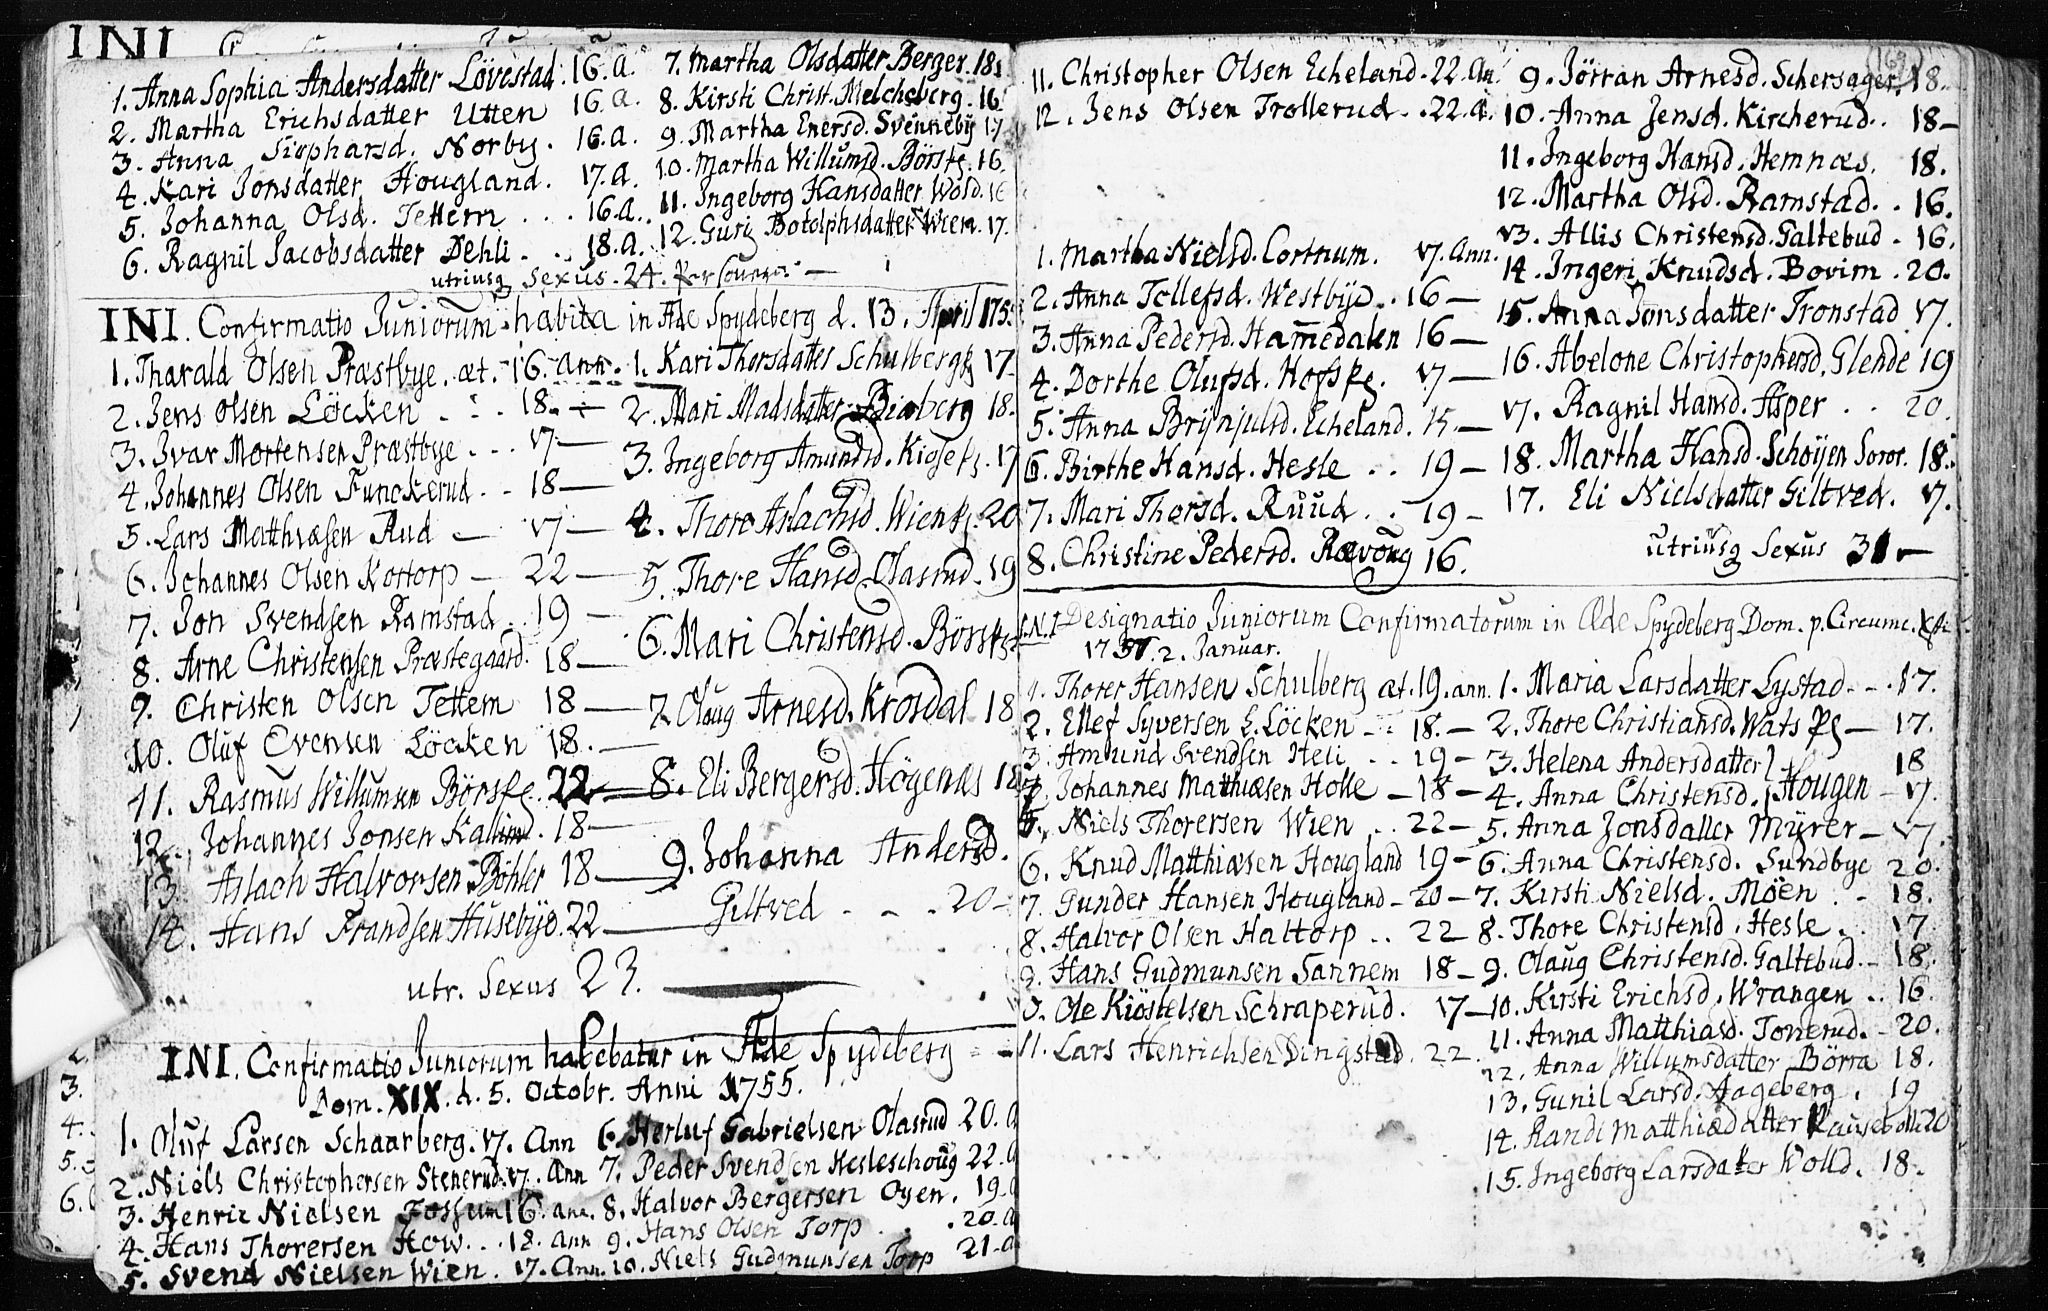 INI.
1. Anna Sophia Andersdatter Lövestad. 16.a.
2. Martha Erichsdatter Utten 16.a.
3. Anna Siophарsd. Norby. 16.a.
4. Kari Jonsdatter Hougland. 17.a.
5. Johanna Olsd. Tettem . . . 16.a.
6. Ragnil Jacobsdatter Dehli . . 18.a.
7. Martha Olsdatter Berger. 18
8. Kirsti Christ. Melcheberg. 16
9. Martha Enersd. Svenneby 17
10. Martha Willumsd. Börste. 16.
11. Ingeborg Hansdatter Wold. 16
12. Guri Botolphsdatter Wien. 17.
utriusq Sexus. 24. Personer
INI. Confirmatio Juniorum habita in Æde Spydeberg d. 13. April 175
1. Tharald Olsen Præstbye. æt. 16. ann.
2. Jens Olsen Löcken . . . 18. —
3. Ivar Mortensen Præstbye . . . 17 —
4. Johannes Olsen Funckerud . . 18 —
5. Lars Matthiæsen Rud — 17 —
6. Johannes Olsen Kortorp — 22 —
7. Jon Svendsen Ramstad . . 19 —
8. Arne Christensen Præstegaard. 18 —
9. Christen Olsen Tettem 18 —
10. Oluf Evensen Löcken 18. —
11. Rasmus Willumsen Börste. 22 —
12. Johannes Jonsen Kallerud. 18 —
13. Aslach Halvorsen Böhler 18 —
14. Hans Frandsen Husebye. 22 —
1. Kari Thorsdatter Schulberg 17
2. Mari Madsdatter Biaberg 18.
3. Ingeborg Amundsd. Kiose 17
4. Thore Aslachsd. Wien 20
5. Thore Hansd. Olasrud. 19
6. Mari Christensd. Börste
7. Olaug Arnesd. Krosdal 18
8. Eli Bergersd. Högenæs 18
9. Johanna Andersd.
Giltved . . . 20 —
utr. Sexus 23.
INI. Confirmatio Juniorum habebatur in Æde Spydeberg
Dom. XIX. d. 5. Octobr. Anni 1755.
1. Oluf Larsen Schaarberg. 17. Ann
2. Niels Christophersen Stenerud. 17. Ann
3. Henric Nielsen Fossum 16. ann.
4. Hans Thorersen How . . . 18. ann
5. Svend Nielsen Wien. 17. Ann.
6. Herluf Gabrielsen Olasrud 20. a
7. Peder Svendsen Hesleschoug 22. a
8. Halvor Bergersen Oyen. 19. a
9. Hans Olsen Torp . . 20. a
10. Niels Gudmunsen Torp 21. a
11. Christopher Olsen Echeland. 22. an.
12. Jens Olsen Trollerud. . 22. a.
1. Martha Nielsd. Cortnum. 17. Ann.
2. Anna Tollefsd. Westbye. . 16 —
3. Anna Pedersd. Hammedalen 16 —
4. Dorthe Olufsd. Hofs . 17 —
5. Anna Brynjulsd. Echeland. 15. —
6. Birthe Hansd. Hesle . . 19 —
7. Mari Thorsd. Ruud . . 19 —
8. Christine Pedersd. Rævoug 16.
9. Jörran Arnesd. Schersager. 18.
10. Anna Jensd. Kircherud. . 18 —
11. Ingeborg Hansd. Hemnæs. 18.
12. Martha Olsd. Ramstad. . 16.
13. Allis Christensd. Galtebud . 16.
14. Ingeri Knudsd. Bovim . 20.
15. Anna Jonsdatter Tronstad 17.
16. Abelone Christophersd. Glende 19
17. Ragnil Hansd. Asper . . 20.
18. Martha Hansd. Schöyen Soror. 18.
17. Eli Nielsdatter Giltved. 17.
utriusq Sexus 31 —
I.N.I Designatio Juniorum Confirmatorum in Æde Spydeberg Dom. p. Circumc. Xsti
1757. 2. Januar.
1. Thorer Hansen Schulberg æt. 19. ann.
2. Ellef Syversen L. Löcken . . 18. —
3. Amund Svendsen Heli . . 19 —
4. Johannes Matthiæsen Holle — 18 —
5. Niels Thorersen Wien . . 22 —
6. Knud Matthiæsen Hougland 19 —
7. Gunder Hansen Hougland — 20 —
8. Halvor Olsen Haltorp . . 22
9. Hans Gudmunsen Sannem 18 —
0. Ole Kiöstelsen Schraperud. 17 —
11. Lars Henrichsen Dingstad. 22.
1. Maria Larsdatter Lystad . . . 17.
2. Thore Christiansd. Wats — 17.
3. Helena Andersdatter } 18
4. Anna Christensd. } Hougen — 17.
5. Anna Jonsdatter Myrer — 17.
6. Anna Christensd. Sundbye 20.
7. Kirsti Nielsd. Möen . . 18.
8. Thore Christensd. Hesle . . 17
9. Olaug Christensd. Galtebud. — 18.
10. Kirsti Erichsd. Wrangen . . 16.
11. Anna Matthiasd. Tonerud. — 20.
12. Anna Willumsdatter Borra 18.
13. Gunil Larsd. Aageberg. 19
14. Randi Matthiædatter 20
15. Ingeborg Larsdatter Wolld. 18.